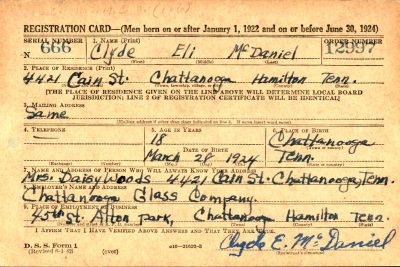 REGISTRATION CARD—(Men born on or after January 1, 1922 and on or before June 30, 1924)
SERIAL NUMBER 1. NAME (Print) ORDER NUMBER
N 666 Clyde Eli McDaniel 12997
(First) (Middle) (Last)
2. PLACE OF RESIDENCE (Print)
4421 Cain St. Chattanooga Hamilton Tenn.
(Number and street) (Town, township, village, or city) (County) (State)
[THE PLACE OF RESIDENCE GIVEN ON THE LINE ABOVE WILL DETERMINE LOCAL BOARD
JURISDICTION; LINE 2 OF REGISTRATION CERTIFICATE WILL BE IDENTICAL]
3. MAILING ADDRESS
Same
[Mailing address if other than place indicated on line 2. If same insert word same]
4. TELEPHONE 5. AGE IN YEARS 6. PLACE OF BIRTH
18 Chattanooga
DATE OF BIRTH (Town or county)
March 28 1924 Tenn.
(Exchange) (Number) (Mo.) (Day) (Yr.) (State or country)
7. NAME AND ADDRESS OF PERSON WHO WILL ALWAYS KNOW YOUR ADDRESS
Mrs. Daisy Woods 4421 Cain St. Chattanooga, Tenn.
8. EMPLOYER'S NAME AND ADDRESS
Chattanooga Glass Company.
9. PLACE OF EMPLOYMENT OR BUSINESS
45th St. Alton Park, Chattanooga Hamilton Tenn.
(Number and street or R. F. D. number) (Town) (County) (State)
I AFFIRM THAT I HAVE VERIFIED ABOVE ANSWERS AND THAT THEY ARE TRUE.
D. S. S. Form 1
(over)
Clyde E. McDaniel